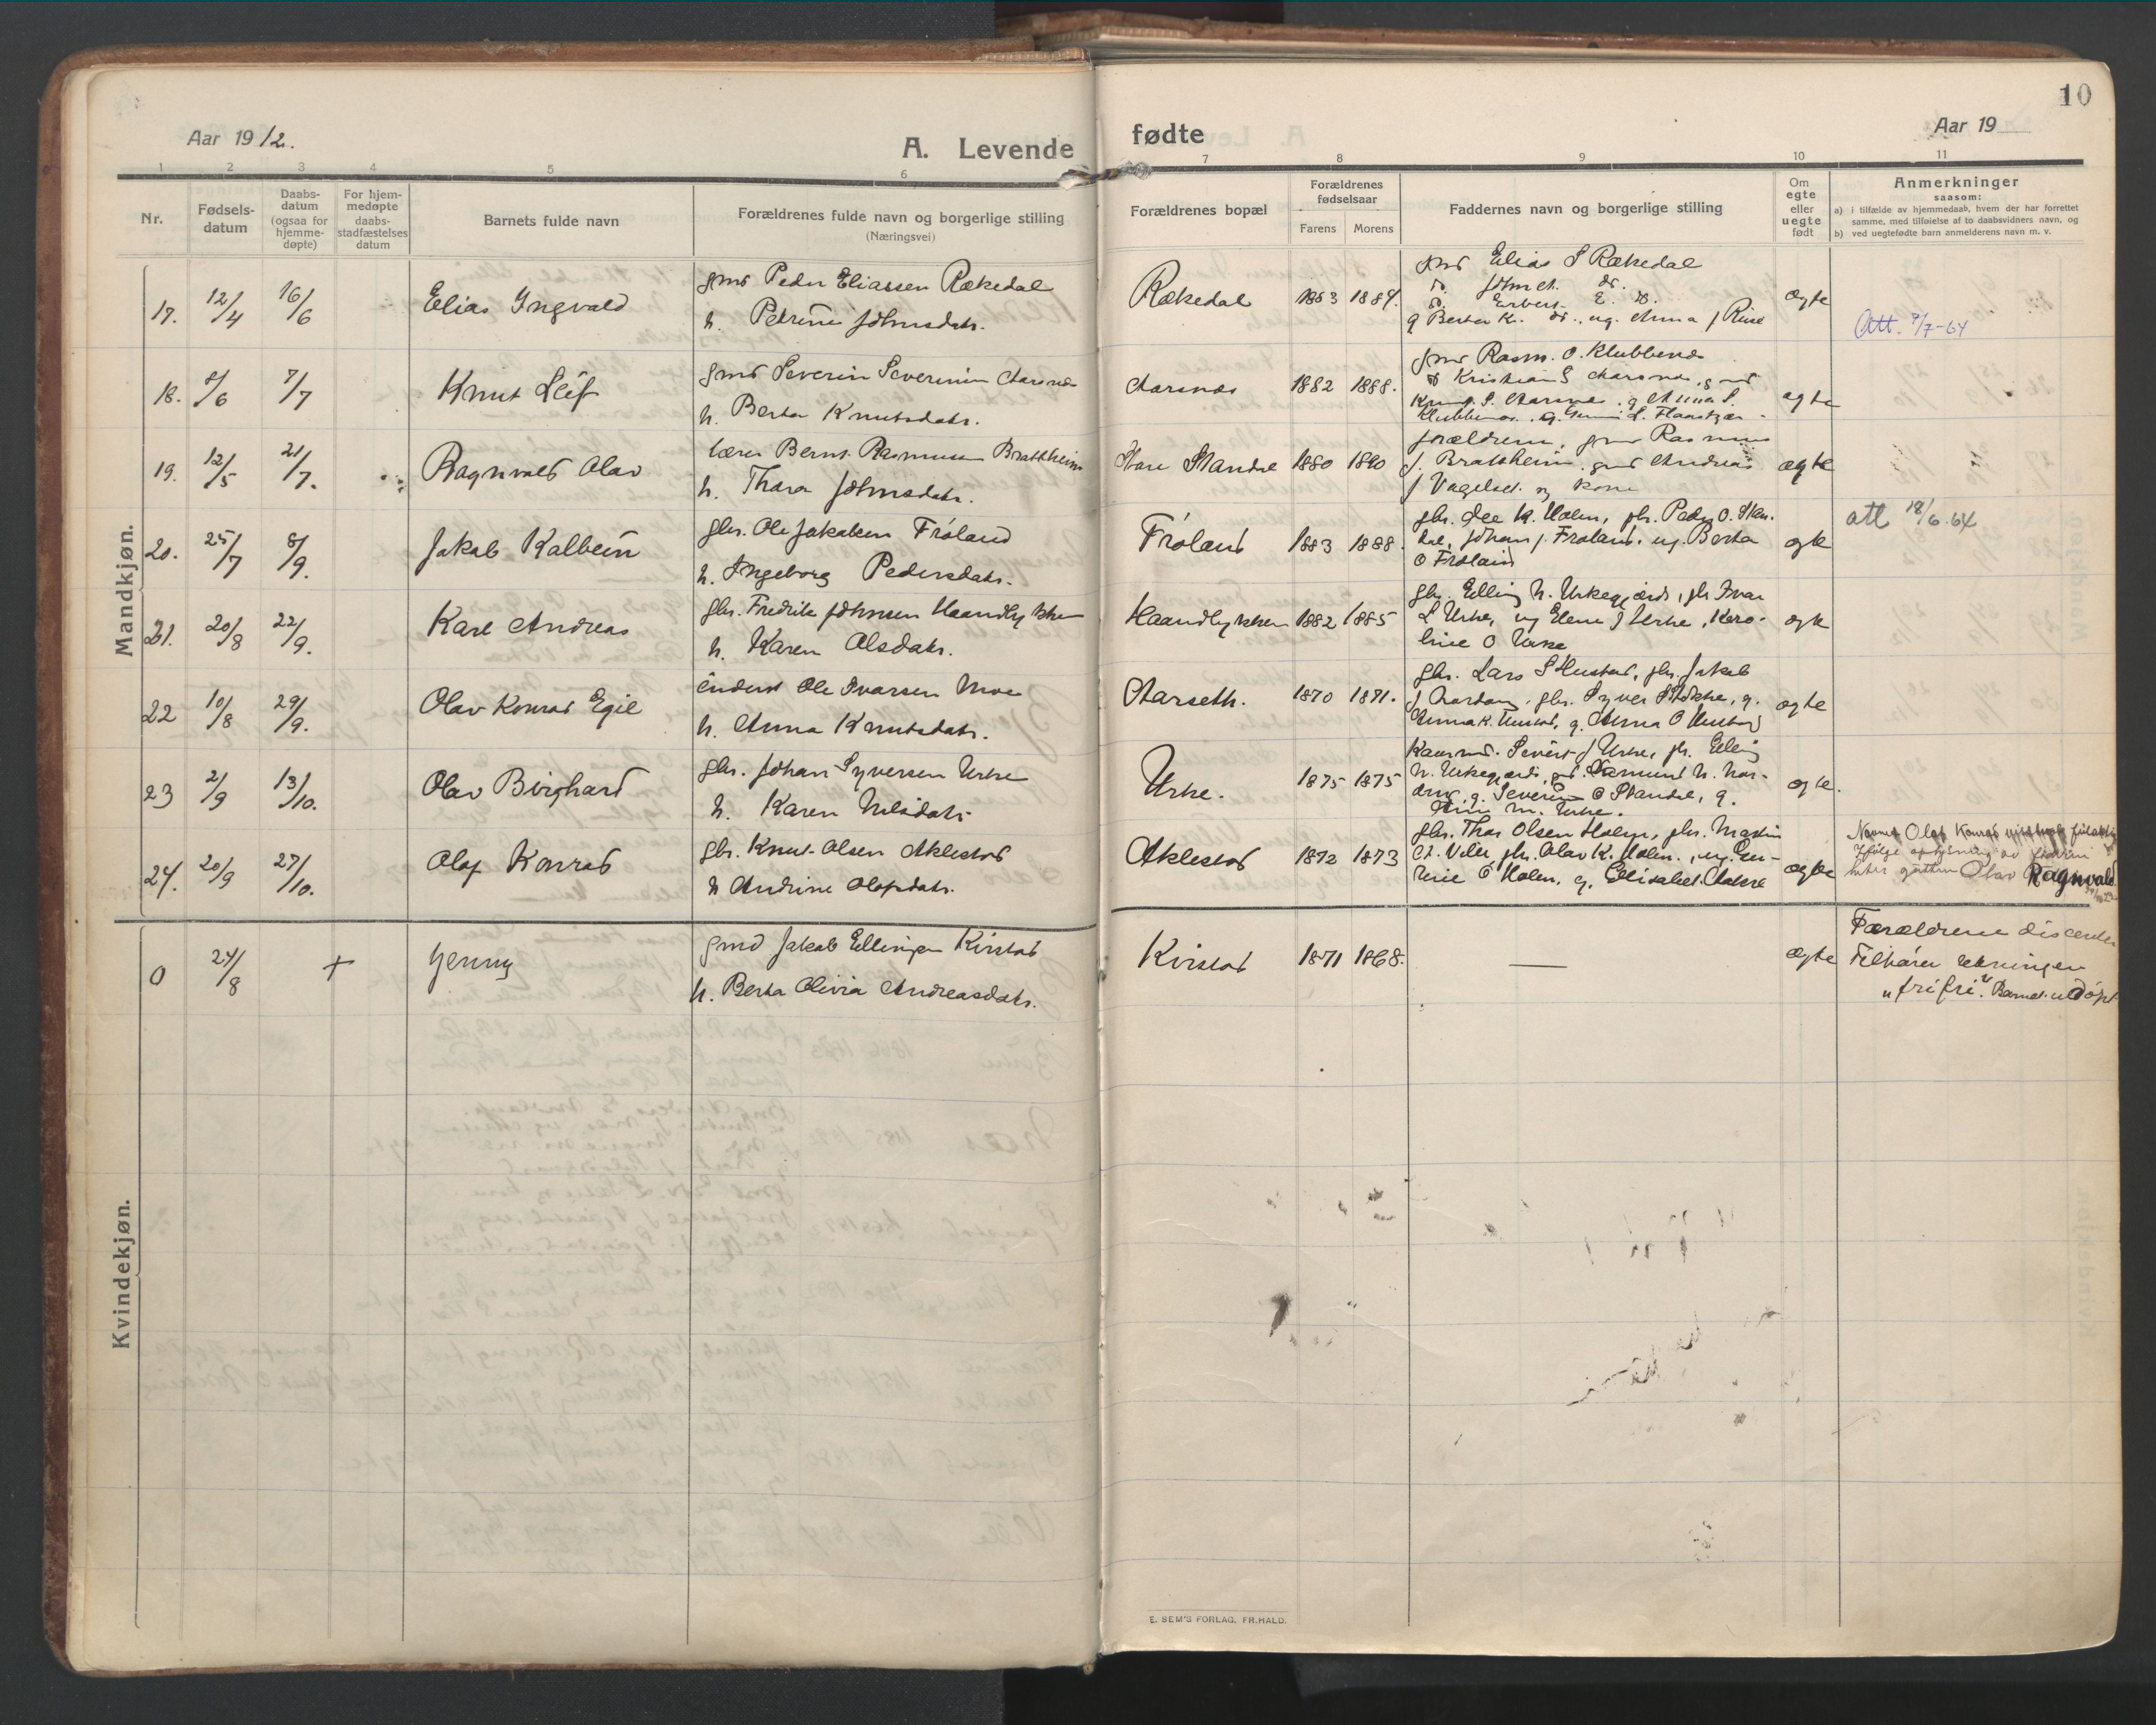 10
Aar 1912.
A. Levende
fødte
Aar 19
1 2 3 4 5 6 7 8 9 10 11
Nr.
Fødsels-
datum
Daabs-
datum
(ogsaa for
hjemme-
døpte)
For hjem-
medøpte
daabs-
stadfæstelses
datum
Barnets fulde navn
Forældrenes fulde navn og borgerlige stilling
(Næringsvei)
Forældrenes bopæl
Forældrenes
fødselsaar
Farens Morens
Faddernes navn og borgerlige stilling
Om
egte
eller
uegte
født
Anmerkninger
saasom:
a) i tilfælde av hjemmedaab, hvem der har forrettet
samme, med tilføielse af to daabsvidners navn, og
b) ved uegtefødte barn anmelderens navn m. v.
Mandkjøn.
17. 12/4 16/6 Elias Ingvald
gmd Peder Eliassen Rækedal
h. Petrine Johnsdatr.
Rækedal 1883 1884.
gmd Elias S Rækedal
do. John do.
do. E. do.
g Berta K. do., ug. Anna J Riise
ægte
Att. 9/7-64
18. 8/6 7/7 Knut Leif
gmd Severin Severinsen Aarsnes
h. Berta Knutsdatr.
Aarsnes 1882 1888.
gmd Rasm. O. Klubbenes
do Kristian S Aarsnes, gmd
Knut S. Aarsnes, g Anna S.
Klubbenes, g.
ægte
19. 12/5 21/7. Ragnvald Olav
lærer Bernt Rasmussen Brattheim
h. Thora Johnsdatr.
Store Standal 1880 1890
forældrene, gmd Rasmus
J. Brattheim, gmd Andreas
J Vagelset og kone
ægte
20. 25/7 8/9. Jakob Kalbein
gbr. Ole Jakobsen Frøland
h. Ingeborg Pedersdatr.
Frøland 1883 1888.
gbr. Ole K. Holen, gbr. Peder O. Stan-
dal, Johan J. Frøland, ug. Berta
O Frøland
ægte
att 18/6.64
21. 20/8 22/9. Karl Andreas
gbr. Fredrik Johnsen Haandlykken
h. Karen Olsdatr.
Haandlykken 1882 1885
gbr. Elling N. Urkegjerde, gbr Ivar
L Urke, ug Elene J Urke, Karo-
line O Urke
ægte
22 10/8 29/9. Olav Konrad Egil
Ole Ivarsen Moe
h. Anna Knutsdatr.
Aarseth. 1870 1871.
gbr. Lars S Hustad, gbr. Jakob
J. gbr. Syver S Stokke, g.
Anna K. Hustad, g. Anna O
ægte
23 2/9 13/10. Olav Birghard
gbr. Johan Syversen Urke
h. Karen Nilsdatr.
Urke. 1875 1875
Sivert J Urke, gbr. Elling
N. Urkegjerde, N. Nor-
g. Severine O Standal, g.
M. Urke.
ægte.
24. 20/9 27/10. Olaf Konrad
gbr. Knut Olsen Aklestad
h Andrine Olafsdatr.
Aklestad 1872 1873
gbr. Thor Olsen Holen, gbr. Martin
A. Velle gbr. Olav K. Holen, ug.
O Holen, g. Elisabet Aakre
ægte
Navnet Olaf Konrad
Ifølge oplysning av
heter gutten Olav Ragnvald.
Kvindekjøn.
0 24/8 + Jenny
gmd Jakob Ellingsen Kirstad
h. Berta Olivia Andreasdatr.
Kvistad 1871 1868. —
ægte
Forældrene
Tilhører retningen
"fri fri". Barnet udøpt
E. SEM'S FORLAG, FR.HALD.